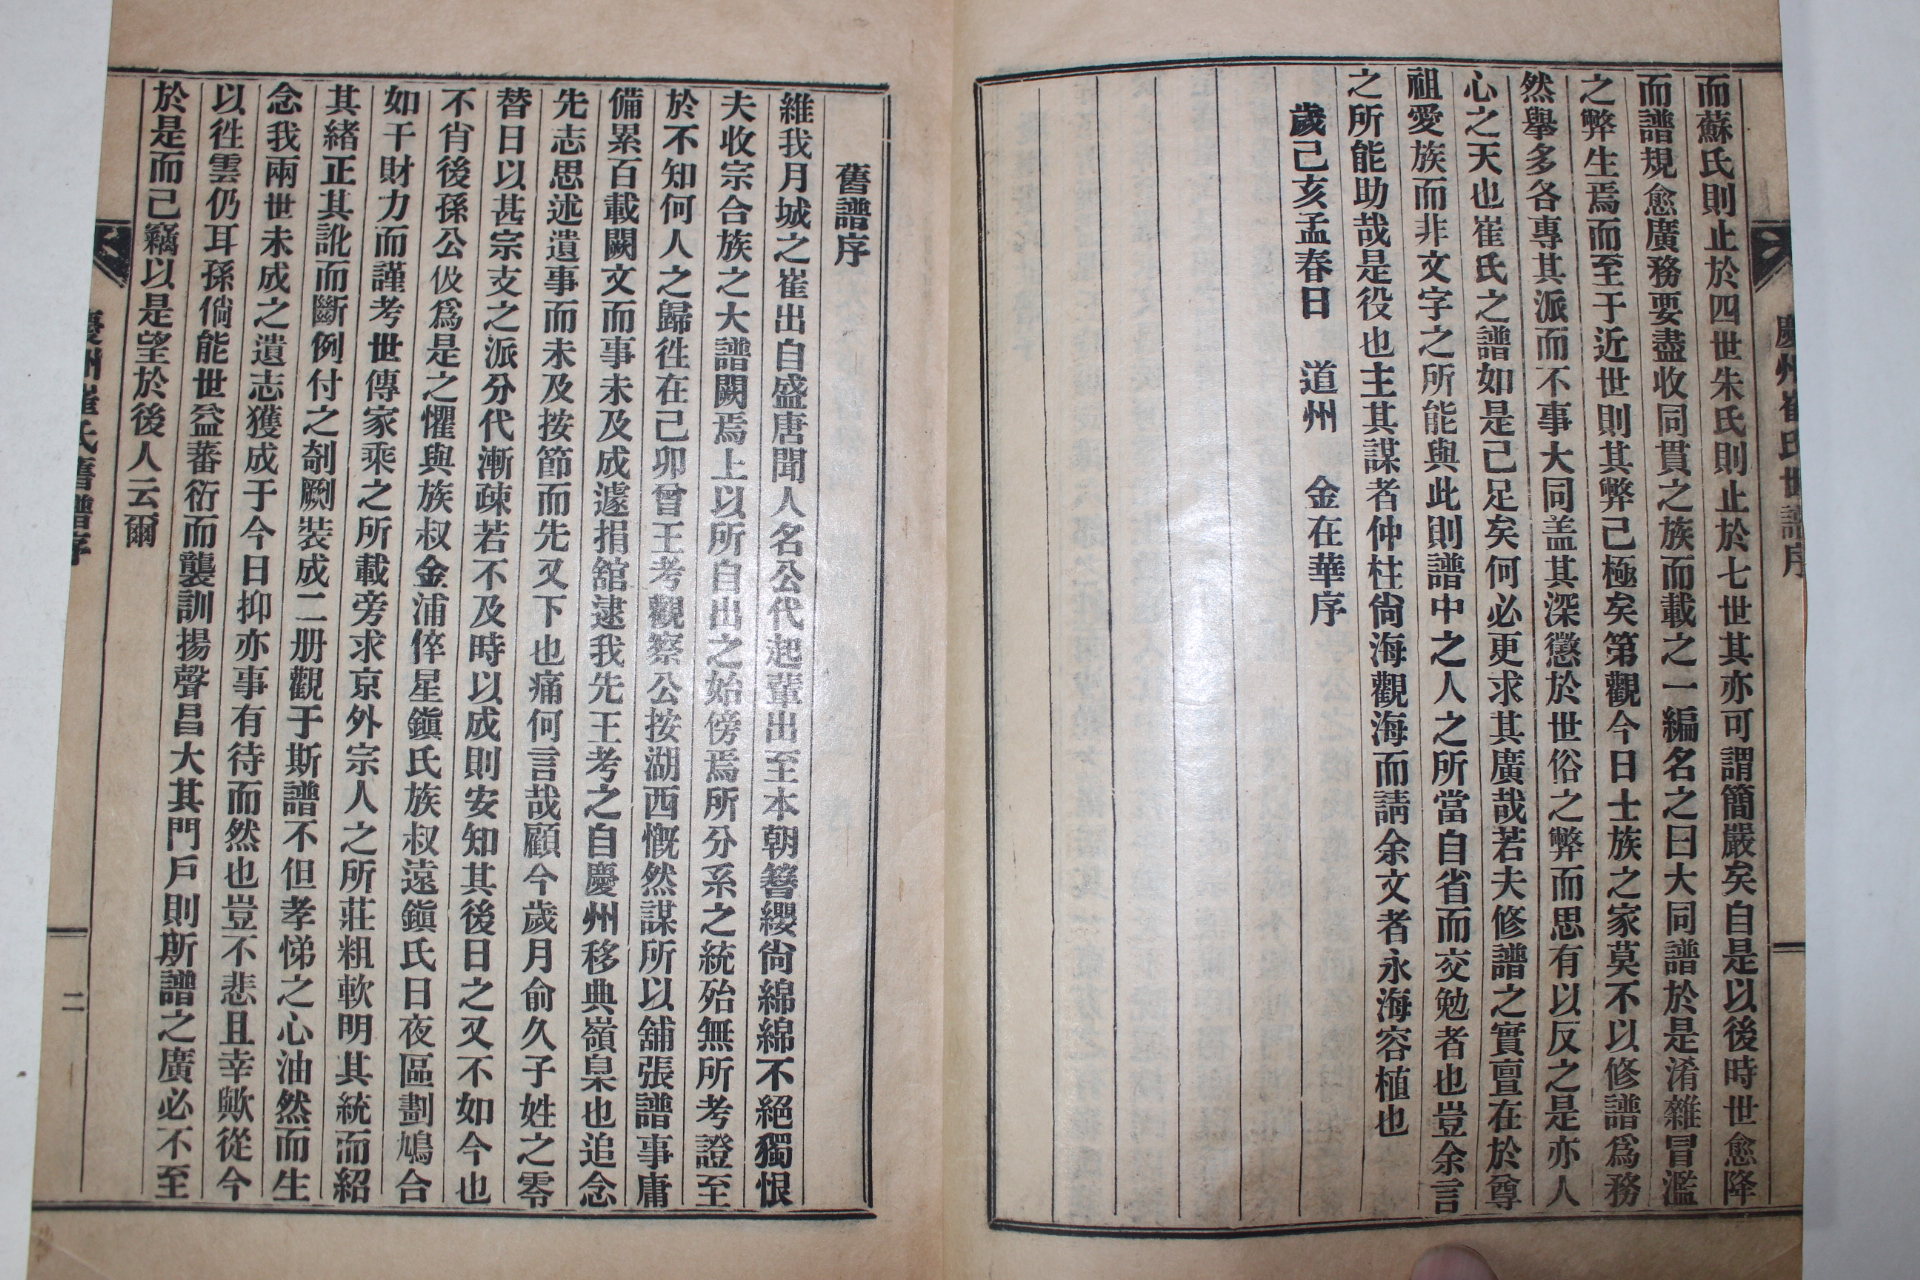 而蘇氏則止於四世朱氏則止於七世其亦可謂簡嚴矣自是以後時世愈降
而譜規愈廣務要盡收同貫之族而載之一編名之曰大同譜於是淆雜冒濫
之弊生焉而至于近世則其弊己極矣第觀今日士族之家莫不以修譜爲務
然擧多各專其派而不事大同盖其深懲於世俗之弊而思有以反之是亦人
心之天也崔氏之譜如是己足矣何必更求其廣哉若夫修譜之實亶在於尊
祖愛族而非文字之所能與此則譜中之人之所當自省而交勉者也豈余言
之所能助哉是役也主其謀者仲柱尙海觀海而請余文者永海容植也
歲己亥孟春日 道州 金在華序
慶州崔氏世譜序
舊譜序
維我月城之崔出自盛唐聞人名公代起輩出至本朝簪纓尙綿綿不絕獨恨
夫收宗合族之大譜闕焉上以所自出之始傍焉所分系之統殆無所考證至
於不知何人之歸徃在己卯曾王考觀察公按湖西慨然謀所以舖張譜事庸
備累百載闕文而事未及成遽捐舘逮我先王考之自慶州移典嶺臬也追念
先志思述遺事而未及按節而先又下也痛何言哉顧今歲月俞久子姓之零
替日以甚宗支之派分代漸疎若不及時以成則安知其後日之又不如今也
不肖後孫公伋爲是之懼與族叔金浦倅星鎭氏族叔遠鎭氏日夜區劃鳩合
如干財力而謹考世傳家乘之所載旁求京外宗人之所莊粗軟明其統而紹
其緖正其訛而斷例付之剞劂裝成二册觀于斯譜不但孝悌之心油然而生
念我兩世未成之遺志獲成于今日抑亦事有待而然也豈不悲且幸歟從今
以徃雲仍耳孫倘能世益蕃衍而襲訓揚聲昌大其門戶則斯譜之廣必不至
於是而己竊以是望於後人云爾
慶州崔氏舊譜序
二